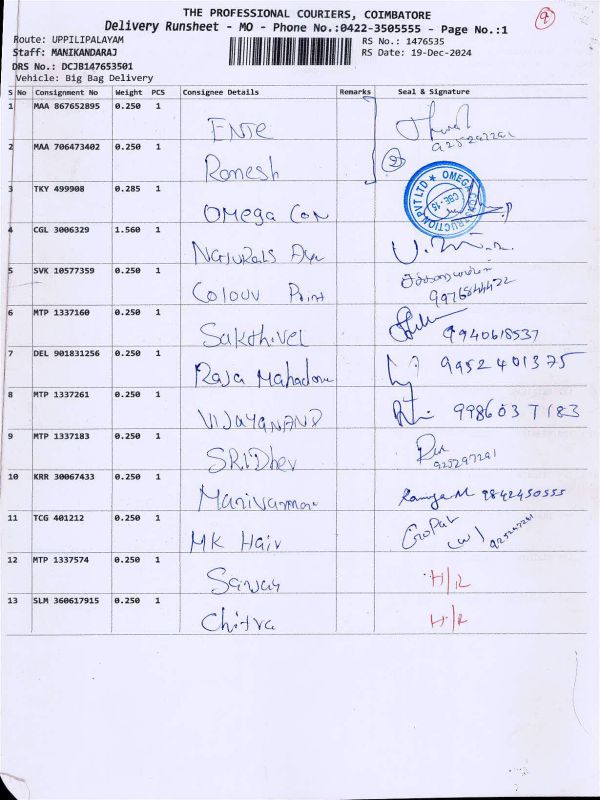 THE PROFESSIONAL COURIERS, COIMBATORE
Delivery Runsheet - MO - Phone No.:0422-3505555 - Page No.:1
Route: UPPILIPALAYAM RS No.: 1476535
Staff: MANIKANDARAJ RS Date: 19-Dec-2024
DRS No.: DCJB147653501
Vehicle: Big Bag Delivery
S No Consignment No Weight PCS Consignee Details Remarks Seal & Signature
1 MAA 867652895 0.250 1
2 MAA 706473402 0.250 1 Ramesh
3 TKY 499908 0.285 1 Omega Con
OMEGA CONSTRUCTION PVT LTD ★ CBE-15
4 CGL 3006329 1.560 1 Naturals
5 SVK 10577359 0.250 1 Colour Point
6 MTP 1337160 0.250 1 Sakthivel 9940618537
7 DEL 901831256 0.250 1 Raja 9952401375
8 MTP 1337261 0.250 1 VIJAYANAND 9986037183
9 MTP 1337183 0.250 1 SRIDhev 925297291
10 KRR 30067433 0.250 1 Ramya M 9842450555
11 TCG 401212 0.250 1 MK Hair Gopal
12 MTP 1337574 0.250 1 H/R
13 SLM 360617915 0.250 1 Chitra H/R